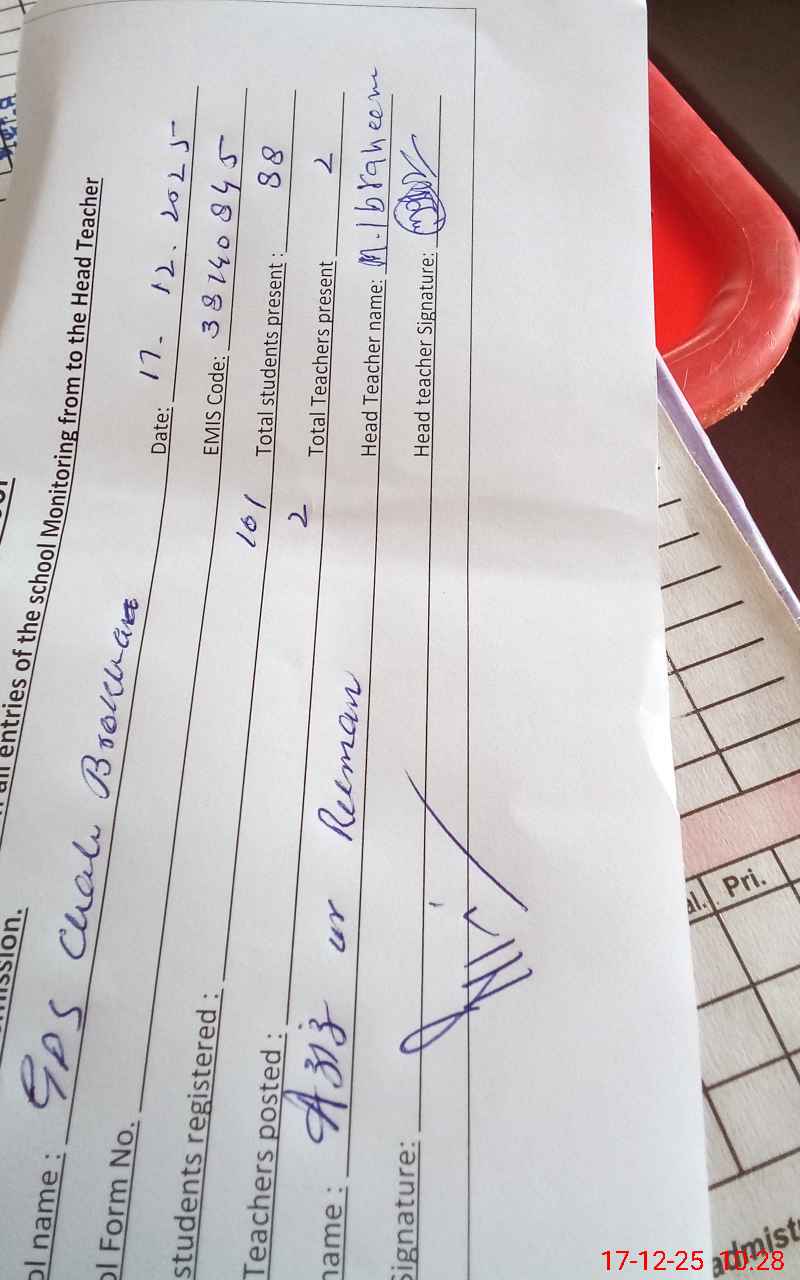 mission.
all entries of the school Monitoring from to the Head Teacher
ol name : GPS Chak Date: 17. 12. 2025
ol Form No. EMIS Code: 38740845
students registered : 101 Total students present : 88
Teachers posted : 2 Total Teachers present 2
name : Aziz ur Reeman Head Teacher name: M. Ibraheem
Signature: Head teacher Signature:
al. Pri.
admist
17-12-25 10:28